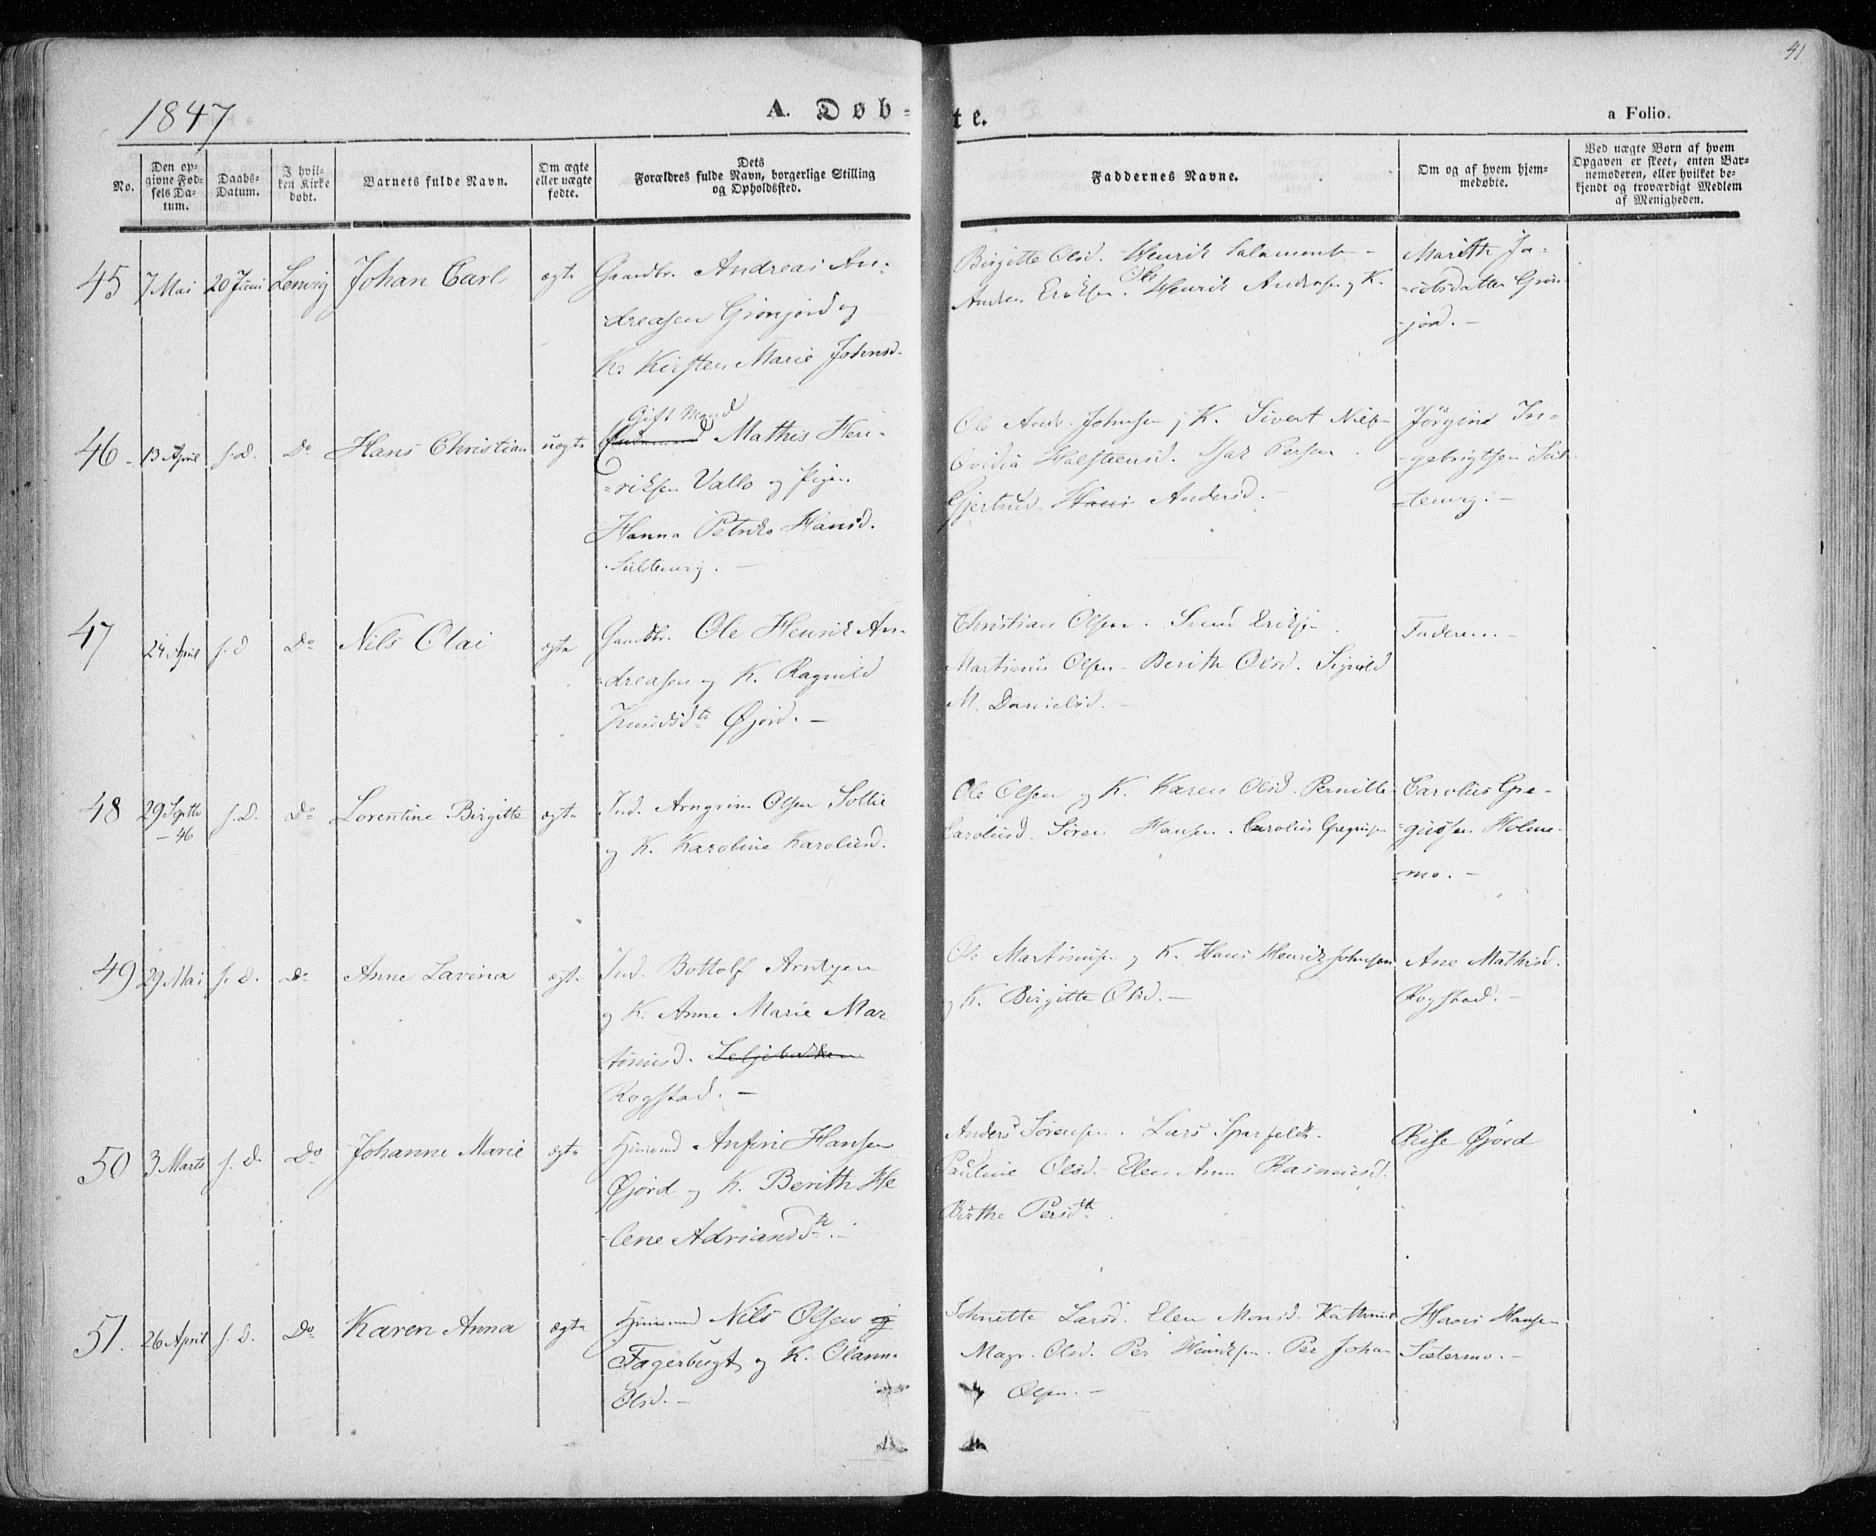 41
1847
A. Døb-
te.
a Folio.
No.
Den op-
givne Fød-
sels Da-
tum.
Daabs-
Datum.
I hvil-
ken Kirke
døbt.
Barnets fulde Navn.
Om ægte
eller uægte
fødte.
Dets
Forældres fulde Navn, borgerlige Stilling
og Opholdssted.
Faddernes Navne.
Om og af hvem hjem-
medøbte.
Ved uægte Børn af hvem
Opgaven er skeet, enten Bar-
nemoderen, eller hvilket be-
kjendt og troværdigt Medlem
af Menigheden.
45 7 Mai 20 Juni Lenvig Johan Carl ægte
Gaardbr. Andreas An-
dreasen Grønjord og
K. Kirsten Marie Johnsd.
Birgitte Olsd. Henrik
Anders Eriksen. Ole Henrik Andersen og K.
Marith Ja-
-cobsdatter Grøn-
-jord.-
46- 13 April s.D. Do Hans Christian uægte
Gift Mand
Mathis Hen-
-riksen Vallo og Pigen
Hanna Petrike Hansd.
Ole And. Johnsen og K. Sivert Niels
Ovidia Halsteensd. Isak Persen
Gjertrud Hans Andersd.-
Jørgine In-
-gebrigtsen
47 24 April s.D Do Nils Olai ægte
Gaardbr. Ole Henrik An-
-dreasen og K. Ragnild
Knudsdtr Øjord.-
Christian Olsen. Svend Eriksen
Martinus Olsen- Berith Olsd. Signild
M. Danielsd.
Faderen.-
48 29 Septbr
-46
s.D. Do Lorentine Birgitte ægte
Ind. Arngrim Olsen Sollie
og K. Karoline Karolusd.
Ole Olsen og K. Karen Olsd. Pernille
Carolusd. Søren Hansen. Carolius Gregusen
Carolius Gre-
-gusen Holme-
-mo.-
49 29 Mai s.D. Do Anne Lavina ægte
Ind. Bottolf Arntzen
og K. Anne Marie Mar
-tinusd.
Rogstad.-
Ole Martinusen og K. Hans Henrik Johnsen
og K. Birgitte Olsd.-
Ane Mathisd.
Rogstad.-
50 3 Marts s.D. Do Johanne Marie ægte
Anfin Hansen
Øjord og K. Berith He
-lene Adriansdtr.-
Anders Sørensen. Lars
Pauline Olsd- Elen Anna Rasmusd.
Birthe Persdtr.
Øjord
51. 26 April s.D. Do Karen Anna ægte
Nils Olsen og
Fagerbugt og K. Olanna
Olsd.-
Johnette Larsd. Elen Monsd. Kathrine
Magr. Olsd. Per Henriksen. Per Johan
Olsen.-
Hans Hansen
Sætermo.-